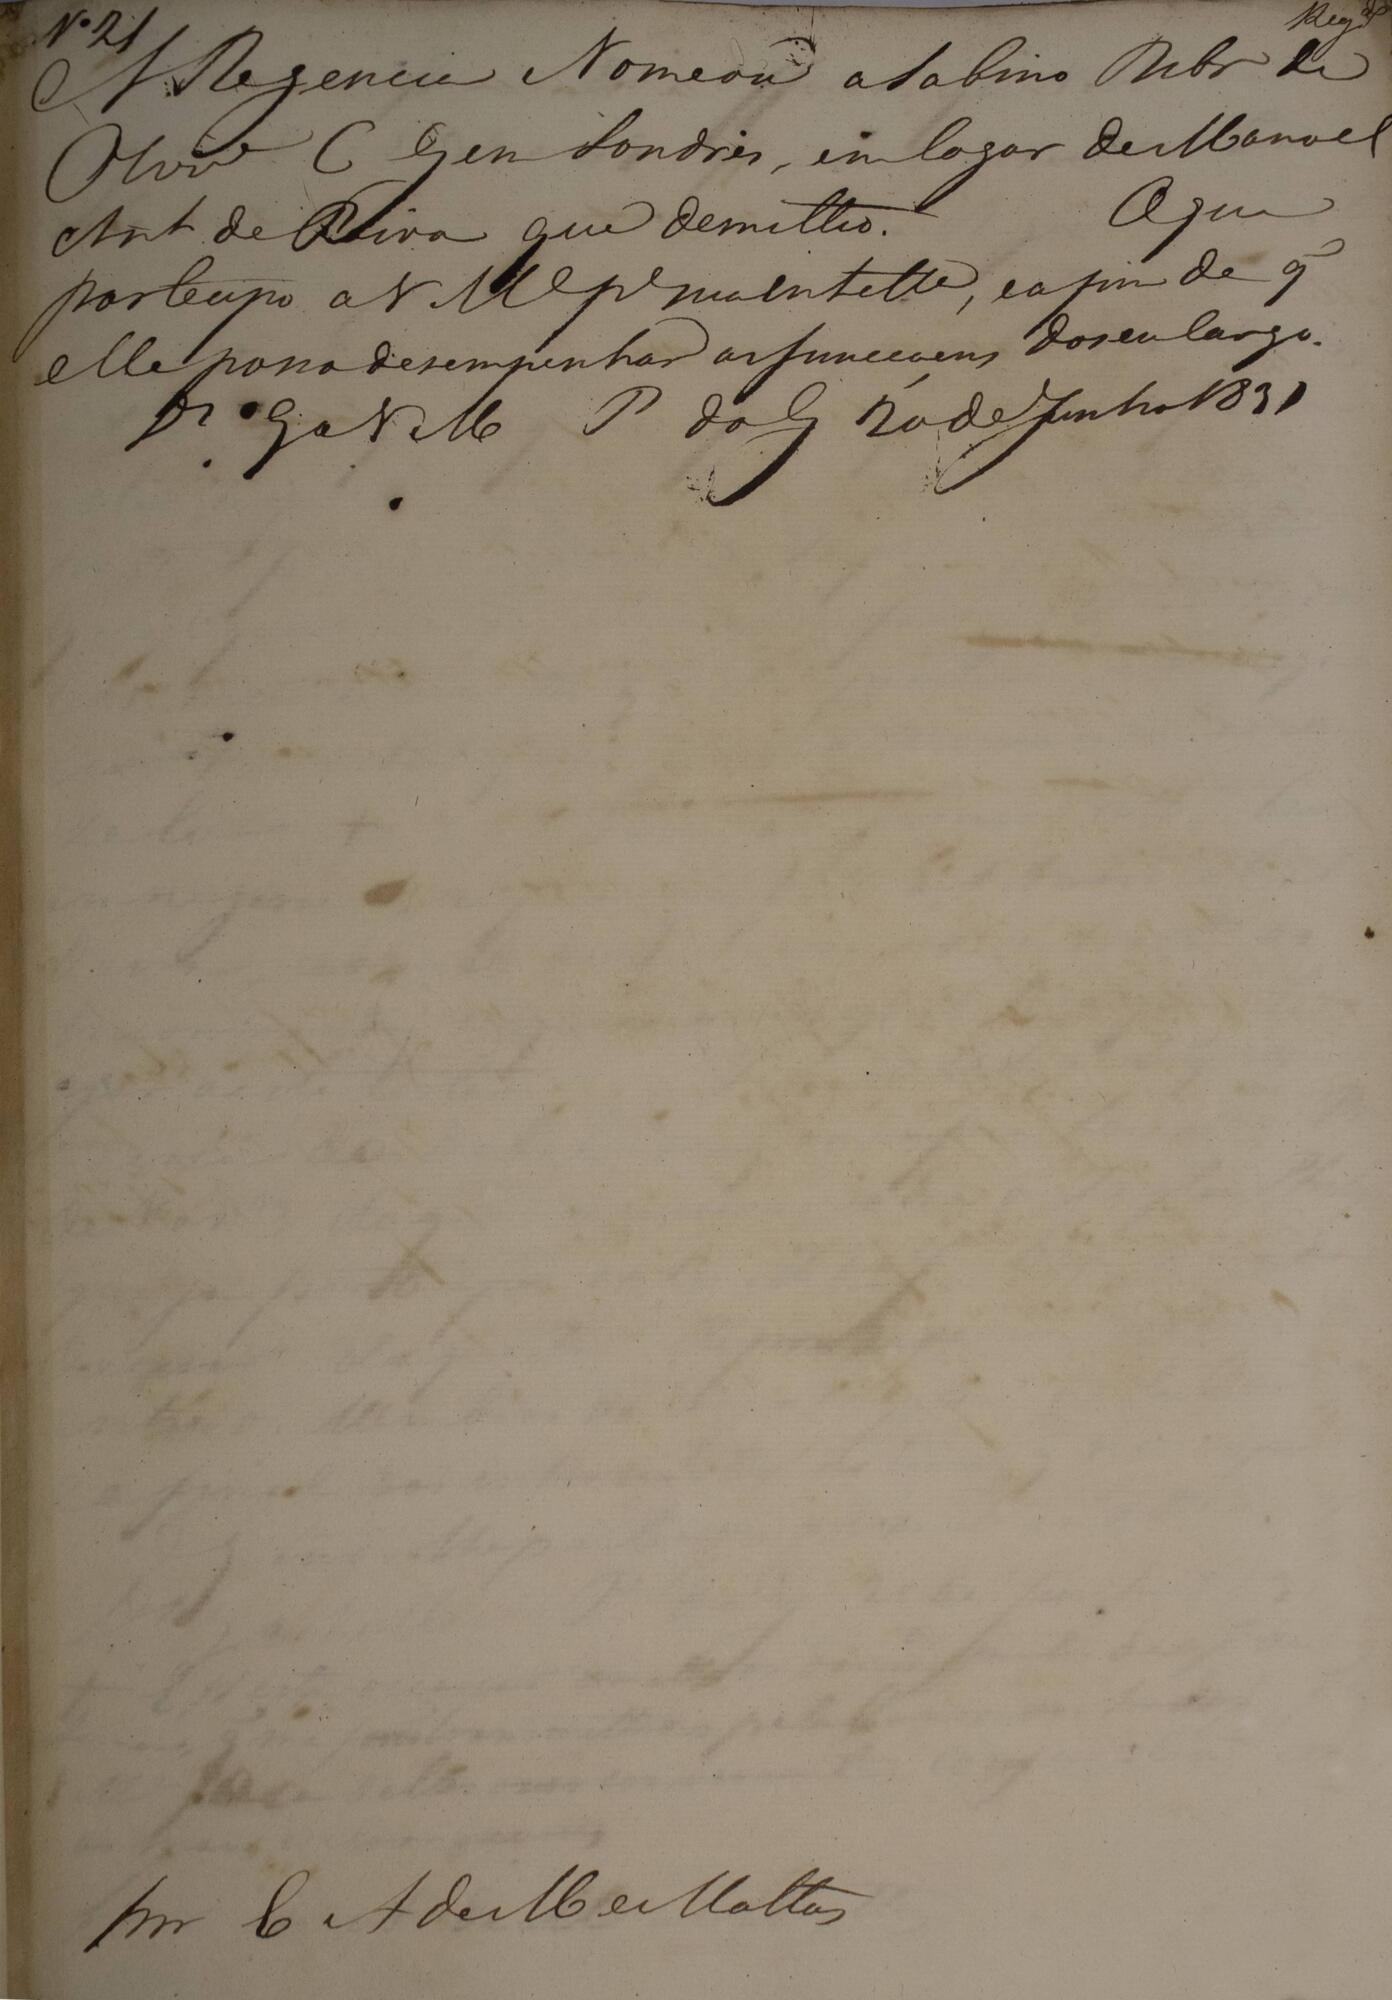 Nº 21
Reg.do
A Regencia Nomeou a Sabino Ribr de
Olivrª C G em Londres, em logar de Manoel
Ant de Paiva que demittio. O que
participo a V M pª sua intellª, e a fim de q̃
elle possa desempenhar as funcçoens do seu Cargo.
Ds Ge a V M P do G 20 de Junho 1831
Snr C A de M e Mattos